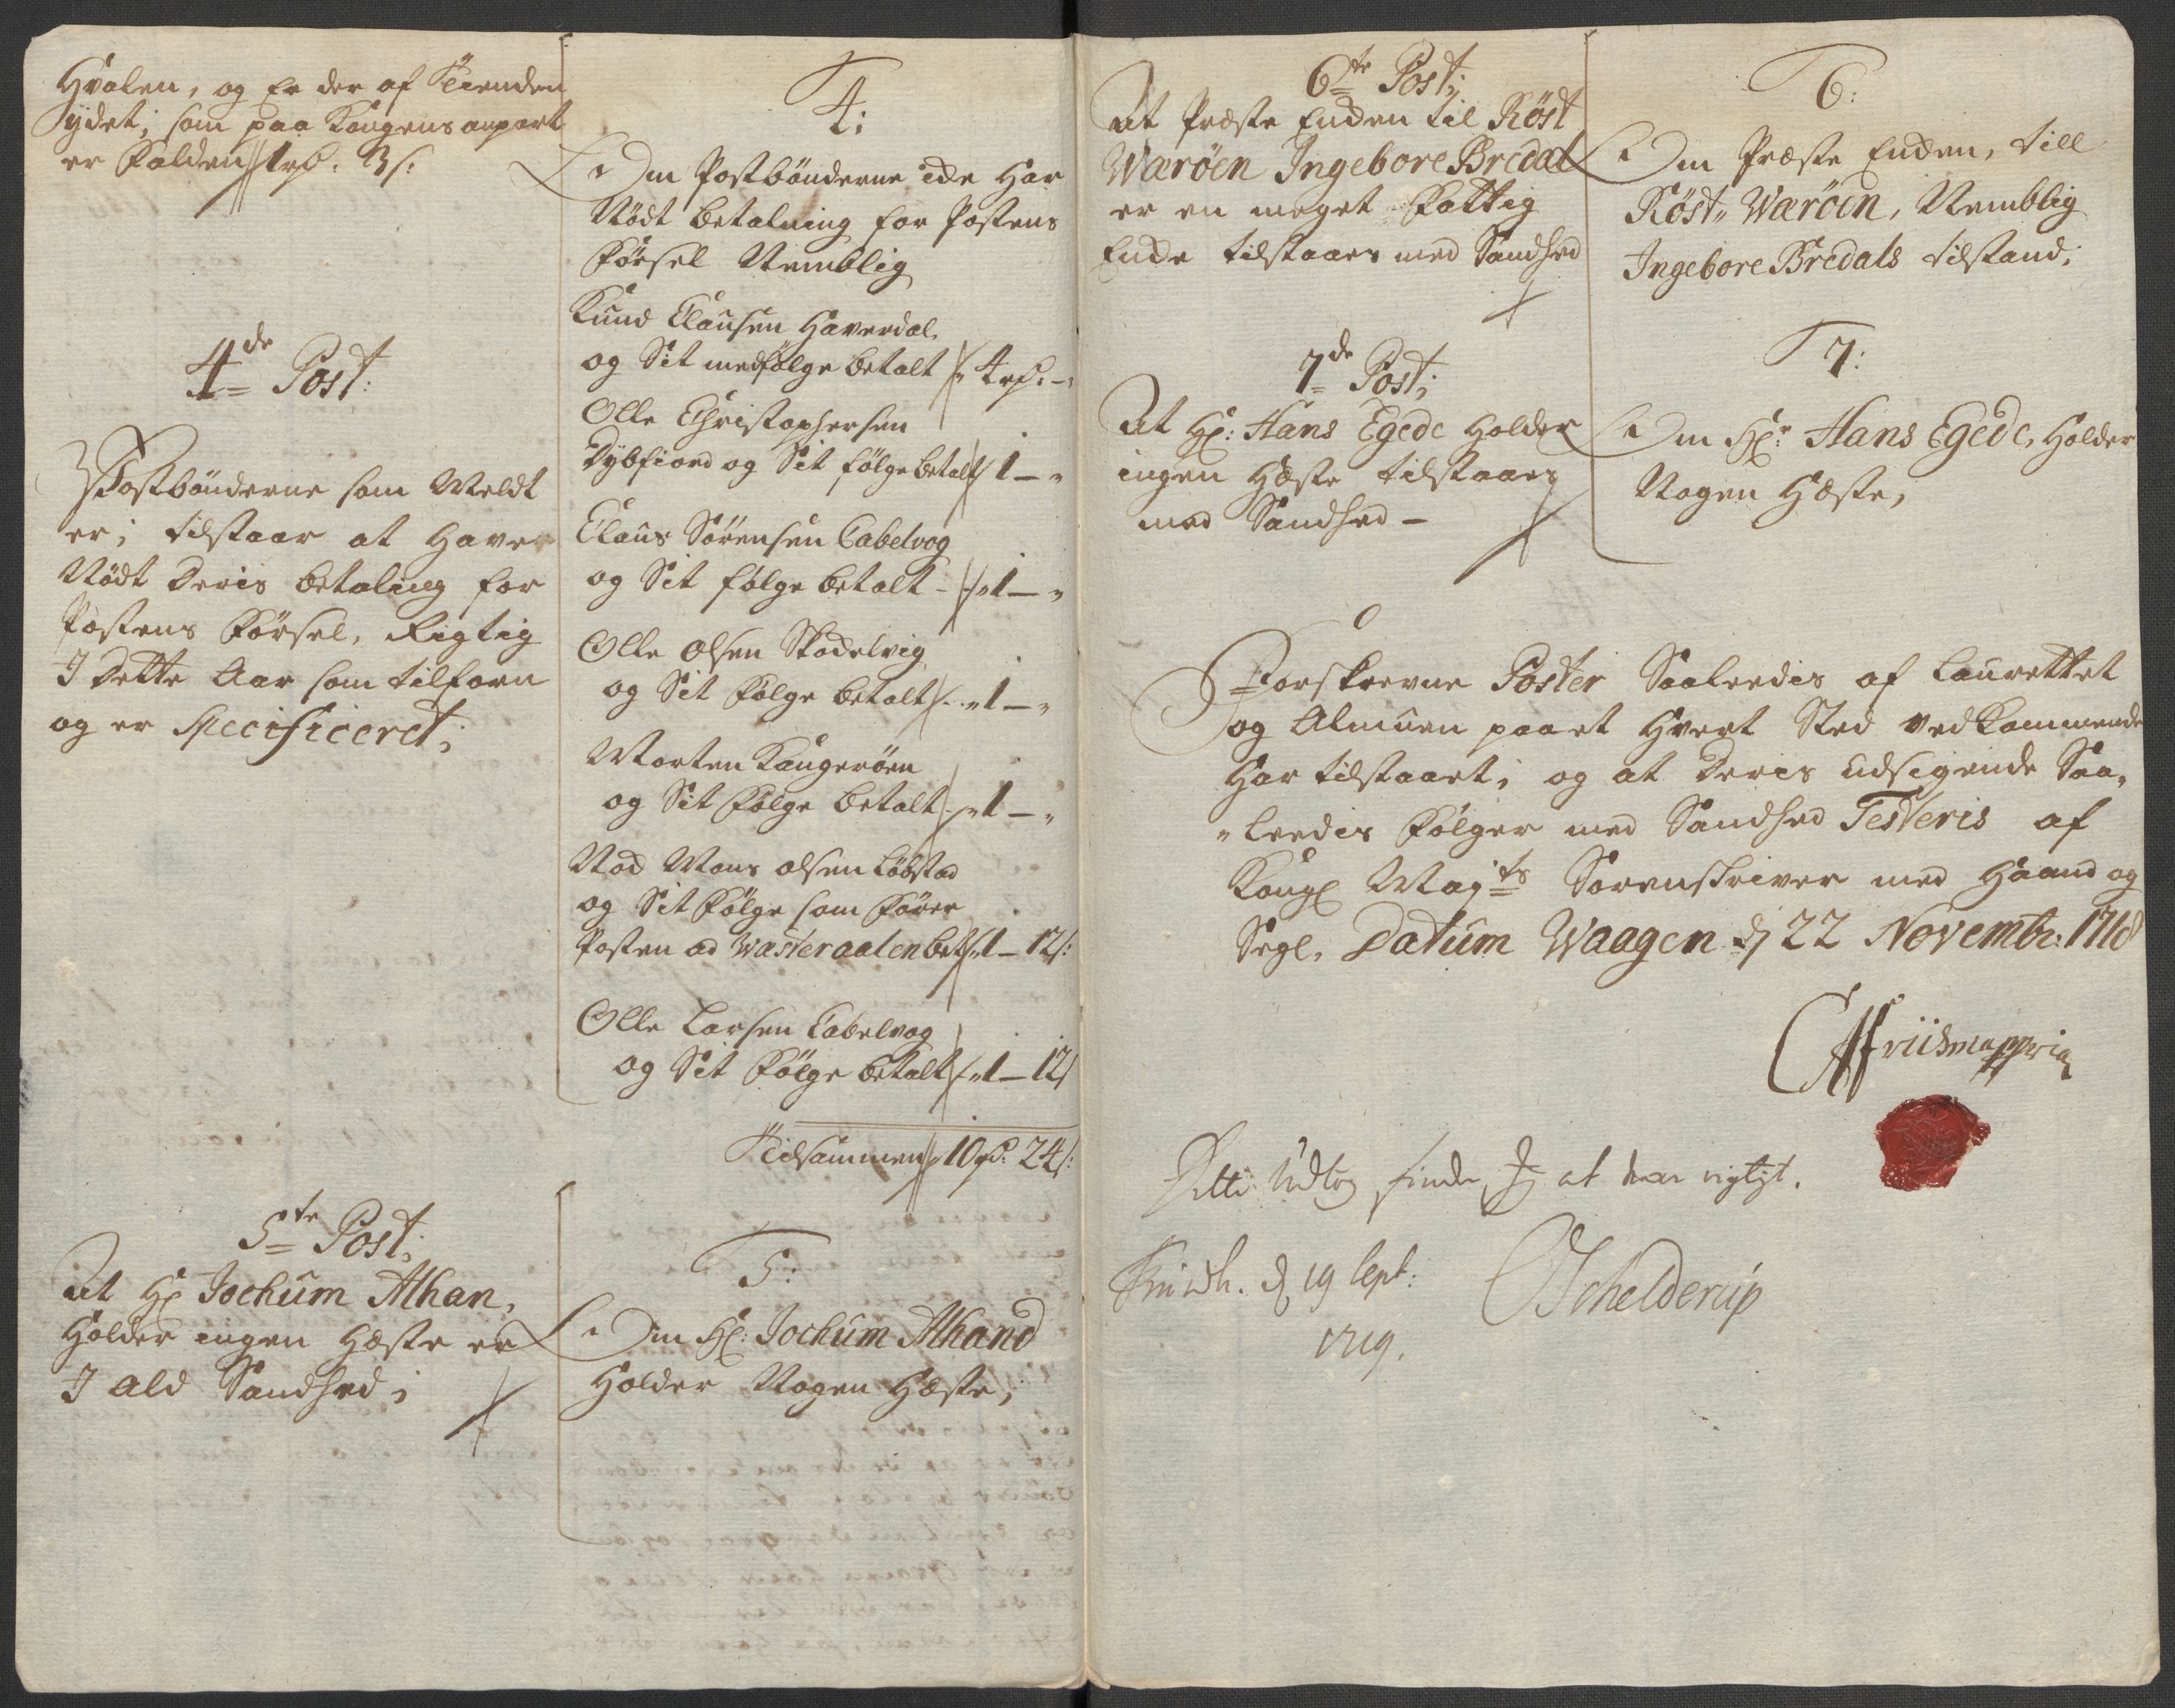 Hvalen, og Er der af Tienden
ydet; som paa Kongens anpart
er Falden 1 rd. 3 s:
4de Post:
Postbønderne som Meldt
er; tilstaar at Haver
Nødt Deris betaling for
Postens Førsel, Rigtig
I Dette Aar som tilforn
og er Specificeret;
5te Post:
At Hr Jochum Alhan,
Holder ingen Hæste er
I Ald Sandhed;
4:
Om Postbønderne ide Har
Nødt betalning for Postens
Førsel Nemblig
Knud Clausen Haverdal
og Sit medfølge betalt 4 rd. -
Olle Christophersen
Dybfiord og Sit følge betalt 1 -
Claus Sørensen Cabelvog
og Sit følge betalt - 1 -
Olle Olsen Skadelvig
og Sit Følge betalt - 1 -
Morten Kaugerøen
og Sit Følge betalt - 1 -
Nod Mons Olsen Løbstad
og Sit Følge som Fører
Posten ad Wasteraalen bet 1 - 12 s:
Olle Larsen Cabelvog
og Sit Følge betalt 1 - 12 s
Tilsammen 10 rd. 24 s:
5:
Om Hr: Jochum Alhand
Holder Nogen Hæste;
6te Post;
At Præste Enden til Røst
Warøen Ingebore Bredal
er en meget Fattig
Ende tilstaaes med Sandhed
7de Post;
At Hr: Hans Egede Holder
ingen Hæste tilstaaes
med Sandhed -
6:
Om Præste Enden, till
Røst,, Warøen, Nemblig
Ingebore Bredals tilstand;
7:
Om Hr: Hans Egede, Holder
Nogen Hæste,
Forskrevne Poster Saaledis af Laurettet
og Almuen paa et Hvert Sted vedkommende
Har tilstaaet; og at Deris udsigende Saa,,
,,ledis Følger med Sandhed Testeris af
Kongl Mayts Sorenskriver med Haand og
Segl, Datum Waagen d 22 Novembr: 1718
Friis mappria
Dette Udtog finder Jeg at være rigtigt.
Trundh. d 19 Sept:
1719.
Schelderup